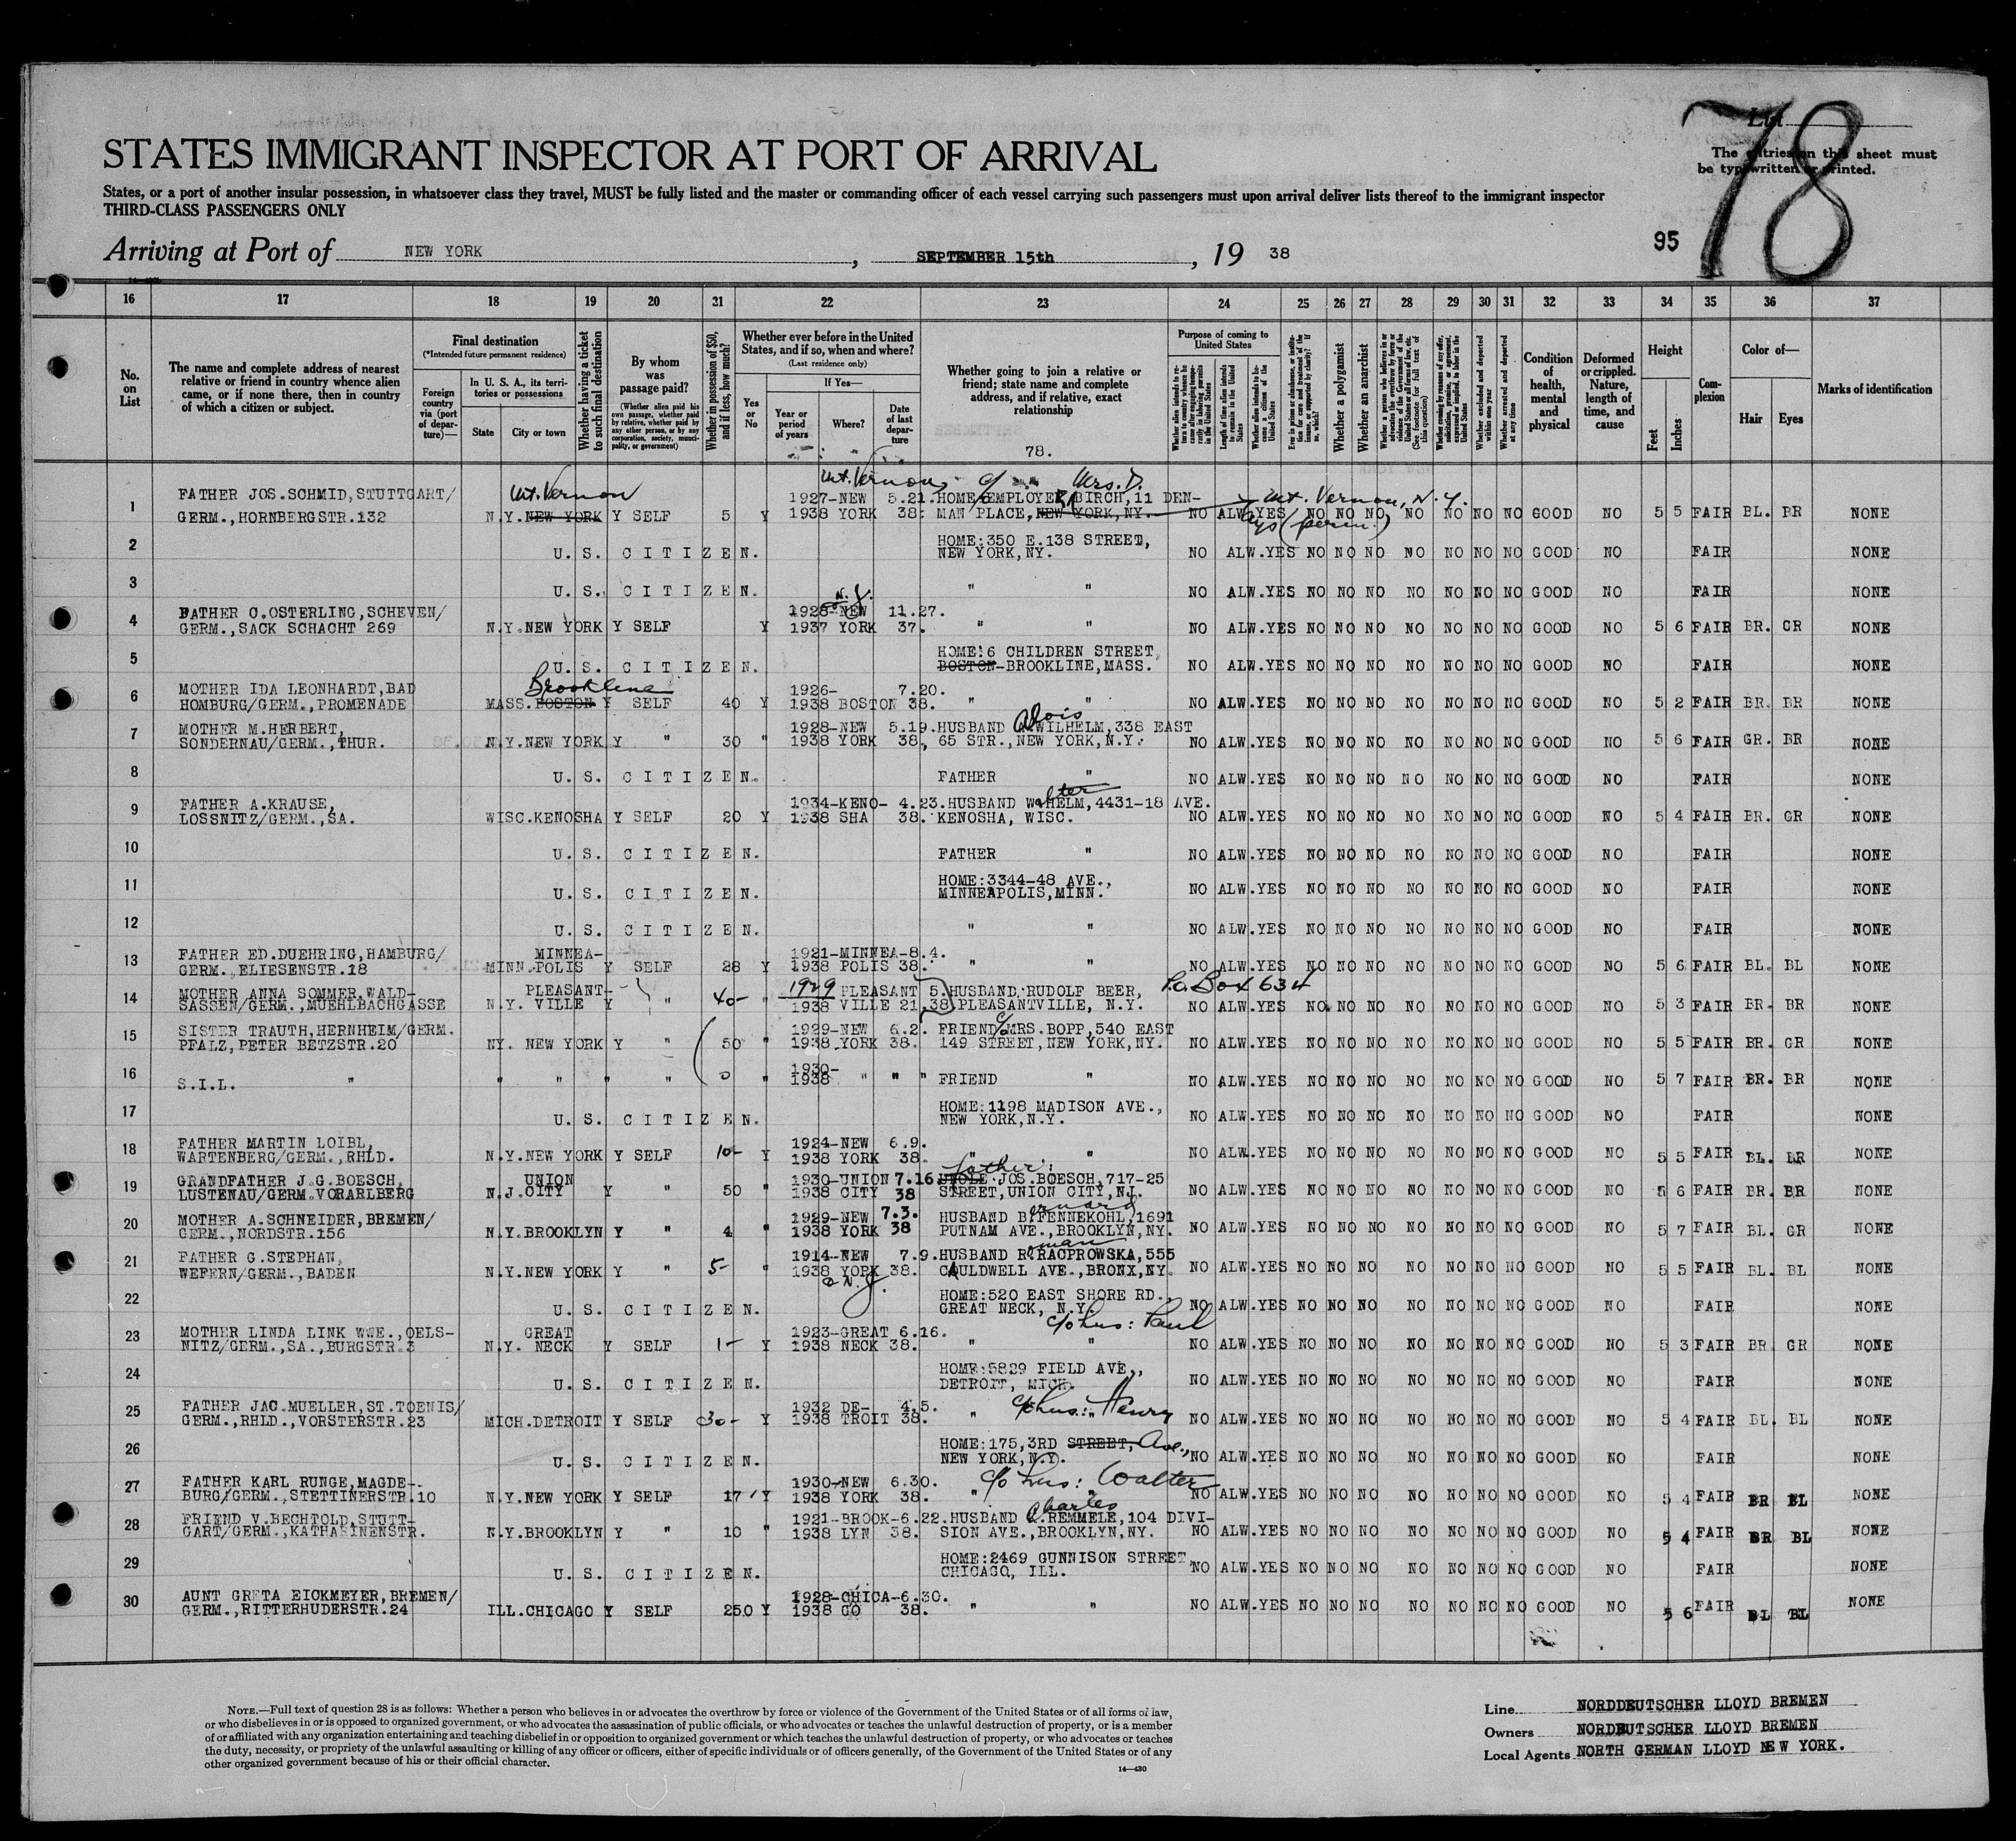 78
List
The entries on this sheet must
be typewritten or printed.
STATES IMMIGRANT INSPECTOR AT PORT OF ARRIVAL
States, or a port of another insular possession, in whatsoever class they travel, MUST be fully listed and the master or commanding officer of each vessel carrying such passengers must upon arrival deliver lists thereof to the immigrant inspector
THIRD-CLASS PASSENGERS ONLY
Arriving at Port of NEW YORK , SEPTEMBER 15th , 19 38
95
16 17 18 19 20 21 22 23 24 25 26 27 28 29 30 31 32 33 34 35 36 37
No. on List
The name and complete address of nearest relative or friend in country whence alien came, or if none there, then in country of which a citizen or subject.
Final destination
(*Intended future permanent residence)
Foreign country via (port of departure)—
In U. S. A., its territories or possessions
State City or town
Whether having a ticket to such final destination
By whom was passage paid?
(Whether alien paid his own passage, whether paid by relative, whether paid by any other person, or by any corporation, society, municipality, or government)
Whether in possession of $50, and if less, how much?
Whether ever before in the United States, and if so, when and where?
(Last residence only)
Yes or No
If Yes—
Year or period of years Where? Date of last departure
Whether going to join a relative or friend; state name and complete address, and if relative, exact relationship
78.
Purpose of coming to United States
Whether a polygamist
Whether an anarchist
Whether excluded and deported within one year
Whether arrested and deported at any time
Condition of health, mental and physical
Deformed or crippled. Nature, length of time, and cause
Height
Feet Inches
Complexion
Color of—
Hair Eyes
Marks of identification
Mt. Vernon Mt. Vernon, c/o Mrs. D. Mt. Vernon, N.Y.
1 FATHER JOS.SCHMID,STUTTGART/ 1927-NEW 5.21. HOME EMPLOYER BIRCH,11 DEN-
GERM.,HORNBERGSTR.132 N.Y. NEW YORK Y SELF 5 Y 1938 YORK 38. MAN PLACE, NEW YORK,NY. NO ALW.YES NO NO NO NO NO NO NO GOOD NO 5 5 FAIR BL. BR NONE
(perm.)
2 HOME:350 E.138 STREET,
U. S. CITIZEN. NEW YORK,NY. NO ALW.YES NO NO NO NO NO NO NO GOOD NO FAIR NONE
3 U. S. CITIZEN. " " NO ALW.YES NO NO NO NO NO NO NO GOOD NO FAIR NONE
N.J.
4 FATHER O.OSTERLING,SCHEVEN/ 1928-NEW 11.27.
GERM.,SACK SCHACHT 269 N.Y.NEW YORK Y SELF Y 1937 YORK 37. " " NO ALW.YES NO NO NO NO NO NO NO GOOD NO 5 6 FAIR BR. GR NONE
5 HOME:6 CHILDREN STREET,
U. S. CITIZEN. BOSTON-BROOKLINE,MASS. NO ALW.YES NO NO NO NO NO NO NO GOOD NO FAIR NONE
Brookline
6 MOTHER IDA LEONHARDT,BAD 1926- 7.20.
HOMBURG/GERM.,PROMENADE MASS.BOSTON Y SELF 40 Y 1938 BOSTON 38. " " NO ALW.YES NO NO NO NO NO NO NO GOOD NO 5 2 FAIR BR. BR NONE
Alois
7 MOTHER M.HERBERT, 1928-NEW 5.19. HUSBAND WILHELM,338 EAST
SONDERNAU/GERM.,THUR. N.Y.NEW YORK Y " 30 " 1938 YORK 38. 65 STR.,NEW YORK,N.Y. NO ALW.YES NO NO NO NO NO NO NO GOOD NO 5 6 FAIR GR. BR NONE
8 U. S. CITIZEN. FATHER " NO ALW.YES NO NO NO NO NO NO NO GOOD NO FAIR NONE
lter
9 FATHER A.KRAUSE, 1934-KENO- 4.23. HUSBAND WaHELM,4431-18 AVE.
LOSSNITZ/GERM.,SA. WISC.KENOSHA Y SELF 20 Y 1938 SHA 38. KENOSHA, WISC. NO ALW.YES NO NO NO NO NO NO NO GOOD NO 5 4 FAIR BR. GR NONE
10 U. S. CITIZEN. FATHER " NO ALW.YES NO NO NO NO NO NO NO GOOD NO FAIR NONE
11 HOME:3344-48 AVE.,
U. S. CITIZEN. MINNEAPOLIS,MINN. NO ALW.YES NO NO NO NO NO NO NO GOOD NO FAIR NONE
12 U. S. CITIZEN. " " NO ALW.YES NO NO NO NO NO NO NO GOOD NO FAIR NONE
13 FATHER ED.DUEHRING,HAMBURG/ MINNEA- 1921-MINNEA-8.4.
GERM.,ELIESENSTR.18 MINN.POLIS Y SELF 28 Y 1938 POLIS 38. " " NO ALW.YES NO NO NO NO NO NO NO GOOD NO 5 6 FAIR BL. BL NONE
14 MOTHER ANNA SOMMER WALD- PLEASANT- 1929 PLEASANT 5. HUSBAND:RUDOLF BEER, P.O. Box 634
SASSEN/GERM.,MUEHLBACHGASSE N.Y. VILLE Y " 40- " 1938 VILLE 21.38 PLEASANTVILLE, N.Y. NO ALW.YES NO NO NO NO NO NO NO GOOD NO 5 3 FAIR BR. BR NONE
15 SISTER TRAUTH,HERNHEIM/GERM. 1929-NEW 6.2. FRIEND c/o MRS.BOPP,540 EAST
PFALZ,PETER BETZSTR.20 NY. NEW YORK Y " 50 " 1938 YORK 38. 149 STREET,NEW YORK,NY. NO ALW.YES NO NO NO NO NO NO NO GOOD NO 5 5 FAIR BR. GR NONE
16 1930-
S.I.L. " " " " " 0 " 1938 " " " FRIEND " NO ALW.YES NO NO NO NO NO NO NO GOOD NO 5 7 FAIR BR. BR NONE
17 HOME:1198 MADISON AVE.,
U. S. CITIZEN. NEW YORK,N.Y. NO ALW.YES NO NO NO NO NO NO NO GOOD NO FAIR NONE
18 FATHER MARTIN LOIBL, 1924-NEW 6.9.
WARTENBERG/GERM.,RHLD. N.Y.NEW YORK Y SELF 10- Y 1938 YORK 38. " " NO ALW.YES NO NO NO NO NO NO NO GOOD NO 5 5 FAIR BL. BR NONE
father:
19 GRANDFATHER J.G.BOESCH, UNION 1930-UNION 7.16. UNCLE JOS.BOESCH,717-25
LUSTENAU/GERM.VORARLBERG N.J.CITY Y " 50 " 1938 CITY 38 STREET,UNION CITY,NJ. NO ALW.YES NO NO NO NO NO NO NO GOOD NO 5 6 FAIR BR. BR NONE
ernard
20 MOTHER A.SCHNEIDER,BREMEN/ 1929-NEW 7.3. HUSBAND B.FENNEKOHL,1691
GERM.,NORDSTR.156 N.Y.BROOKLYN Y " 4 " 1938 YORK 38 PUTNAM AVE.,BROOKLYN,NY. NO ALW.YES NO NO NO NO NO NO NO GOOD NO 5 7 FAIR BL. GR NONE
oman
21 FATHER G.STEPHAN, 1914-NEW 7.9. HUSBAND R.RACPROWSKA,555
WEFERN/GERM.,BADEN N.Y.NEW YORK Y " 5- " 1938 YORK 38. CAULDWELL AVE.,BRONX,NY. NO ALW.YES NO NO NO NO NO NO NO GOOD NO 5 5 FAIR BL. BL NONE
N.J.
22 HOME:520 EAST SHORE RD.,
U. S. CITIZEN. GREAT NECK, N.Y. NO ALW.YES NO NO NO NO NO NO NO GOOD NO FAIR NONE
c/o hus: Paul
23 MOTHER LINDA LINK WWE.,OELS- GREAT 1923-GREAT 6.16.
NITZ/GERM.,SA.,BURGSTR.3 N.Y. NECK Y SELF 1- Y 1938 NECK 38. " " NO ALW.YES NO NO NO NO NO NO NO GOOD NO 5 3 FAIR BR GR NONE
24 HOME:5829 FIELD AVE.,
U. S. CITIZEN. DETROIT, MICH. NO ALW.YES NO NO NO NO NO NO NO GOOD NO FAIR NONE
25 FATHER JAC.MUELLER,ST.TOENIS/ 1932 DE- 4.5. c/o hus.: Henry
GERM.,RHLD.,VORSTERSTR.23 MICH.DETROIT Y SELF 30- Y 1938 TROIT 38. " " NO ALW.YES NO NO NO NO NO NO NO GOOD NO 5 4 FAIR BL. BL NONE
26 HOME:175,3RD STREET, Ave.,
U. S. CITIZEN. NEW YORK,N.Y. NO ALW.YES NO NO NO NO NO NO NO GOOD NO FAIR NONE
27 FATHER KARL RUNGE,MAGDE- 1930-NEW 6.30. c/o hus: Walter
BURG/GERM.,STETTINERSTR.10 N.Y.NEW YORK Y SELF 17 Y 1938 YORK 38. " " NO ALW.YES NO NO NO NO NO NO NO GOOD NO 5 4 FAIR BR BL NONE
Charles
28 FRIEND V.BECHTOLD,STUTT- 1921-BROOK-6.22. HUSBAND C.REMMELE,104 DIVI-
GART/GERM.,KATHARINENSTR. N.Y.BROOKLYN Y " 10 " 1938 LYN 38. SION AVE.,BROOKLYN,NY. NO ALW.YES NO NO NO NO NO NO NO GOOD NO 5 4 FAIR BR BL NONE
29 HOME:2469 GUNNISON STREET,
U. S. CITIZEN. CHICAGO, ILL. NO ALW.YES NO NO NO NO NO NO NO GOOD NO FAIR NONE
30 AUNT GRETA EICKMEYER,BREMEN/ 1928-CHICA-6.30.
GERM.,RITTERHUDERSTR.24 ILL.CHICAGO Y SELF 250 Y 1938 GO 38. " " NO ALW.YES NO NO NO NO NO NO NO GOOD NO 5 6 FAIR BL BL NONE
NOTE.—Full text of question 28 is as follows: Whether a person who believes in or advocates the overthrow by force or violence of the Government of the United States or of all forms of law,
or who disbelieves in or is opposed to organized government, or who advocates the assassination of public officials, or who advocates or teaches the unlawful destruction of property, or is a member
of or affiliated with any organization entertaining and teaching disbelief in or opposition to organized government or which teaches the unlawful destruction of property, or who advocates or teaches
the duty, necessity, or propriety of the unlawful assaulting or killing of any officer or officers, either of specific individuals or of officers generally, of the Government of the United States or of any
other organized government because of his or their official character.
14—430
Line NORDDEUTSCHER LLOYD BREMEN
Owners NORDDEUTSCHER LLOYD BREMEN
Local Agents NORTH GERMAN LLOYD NEW YORK.